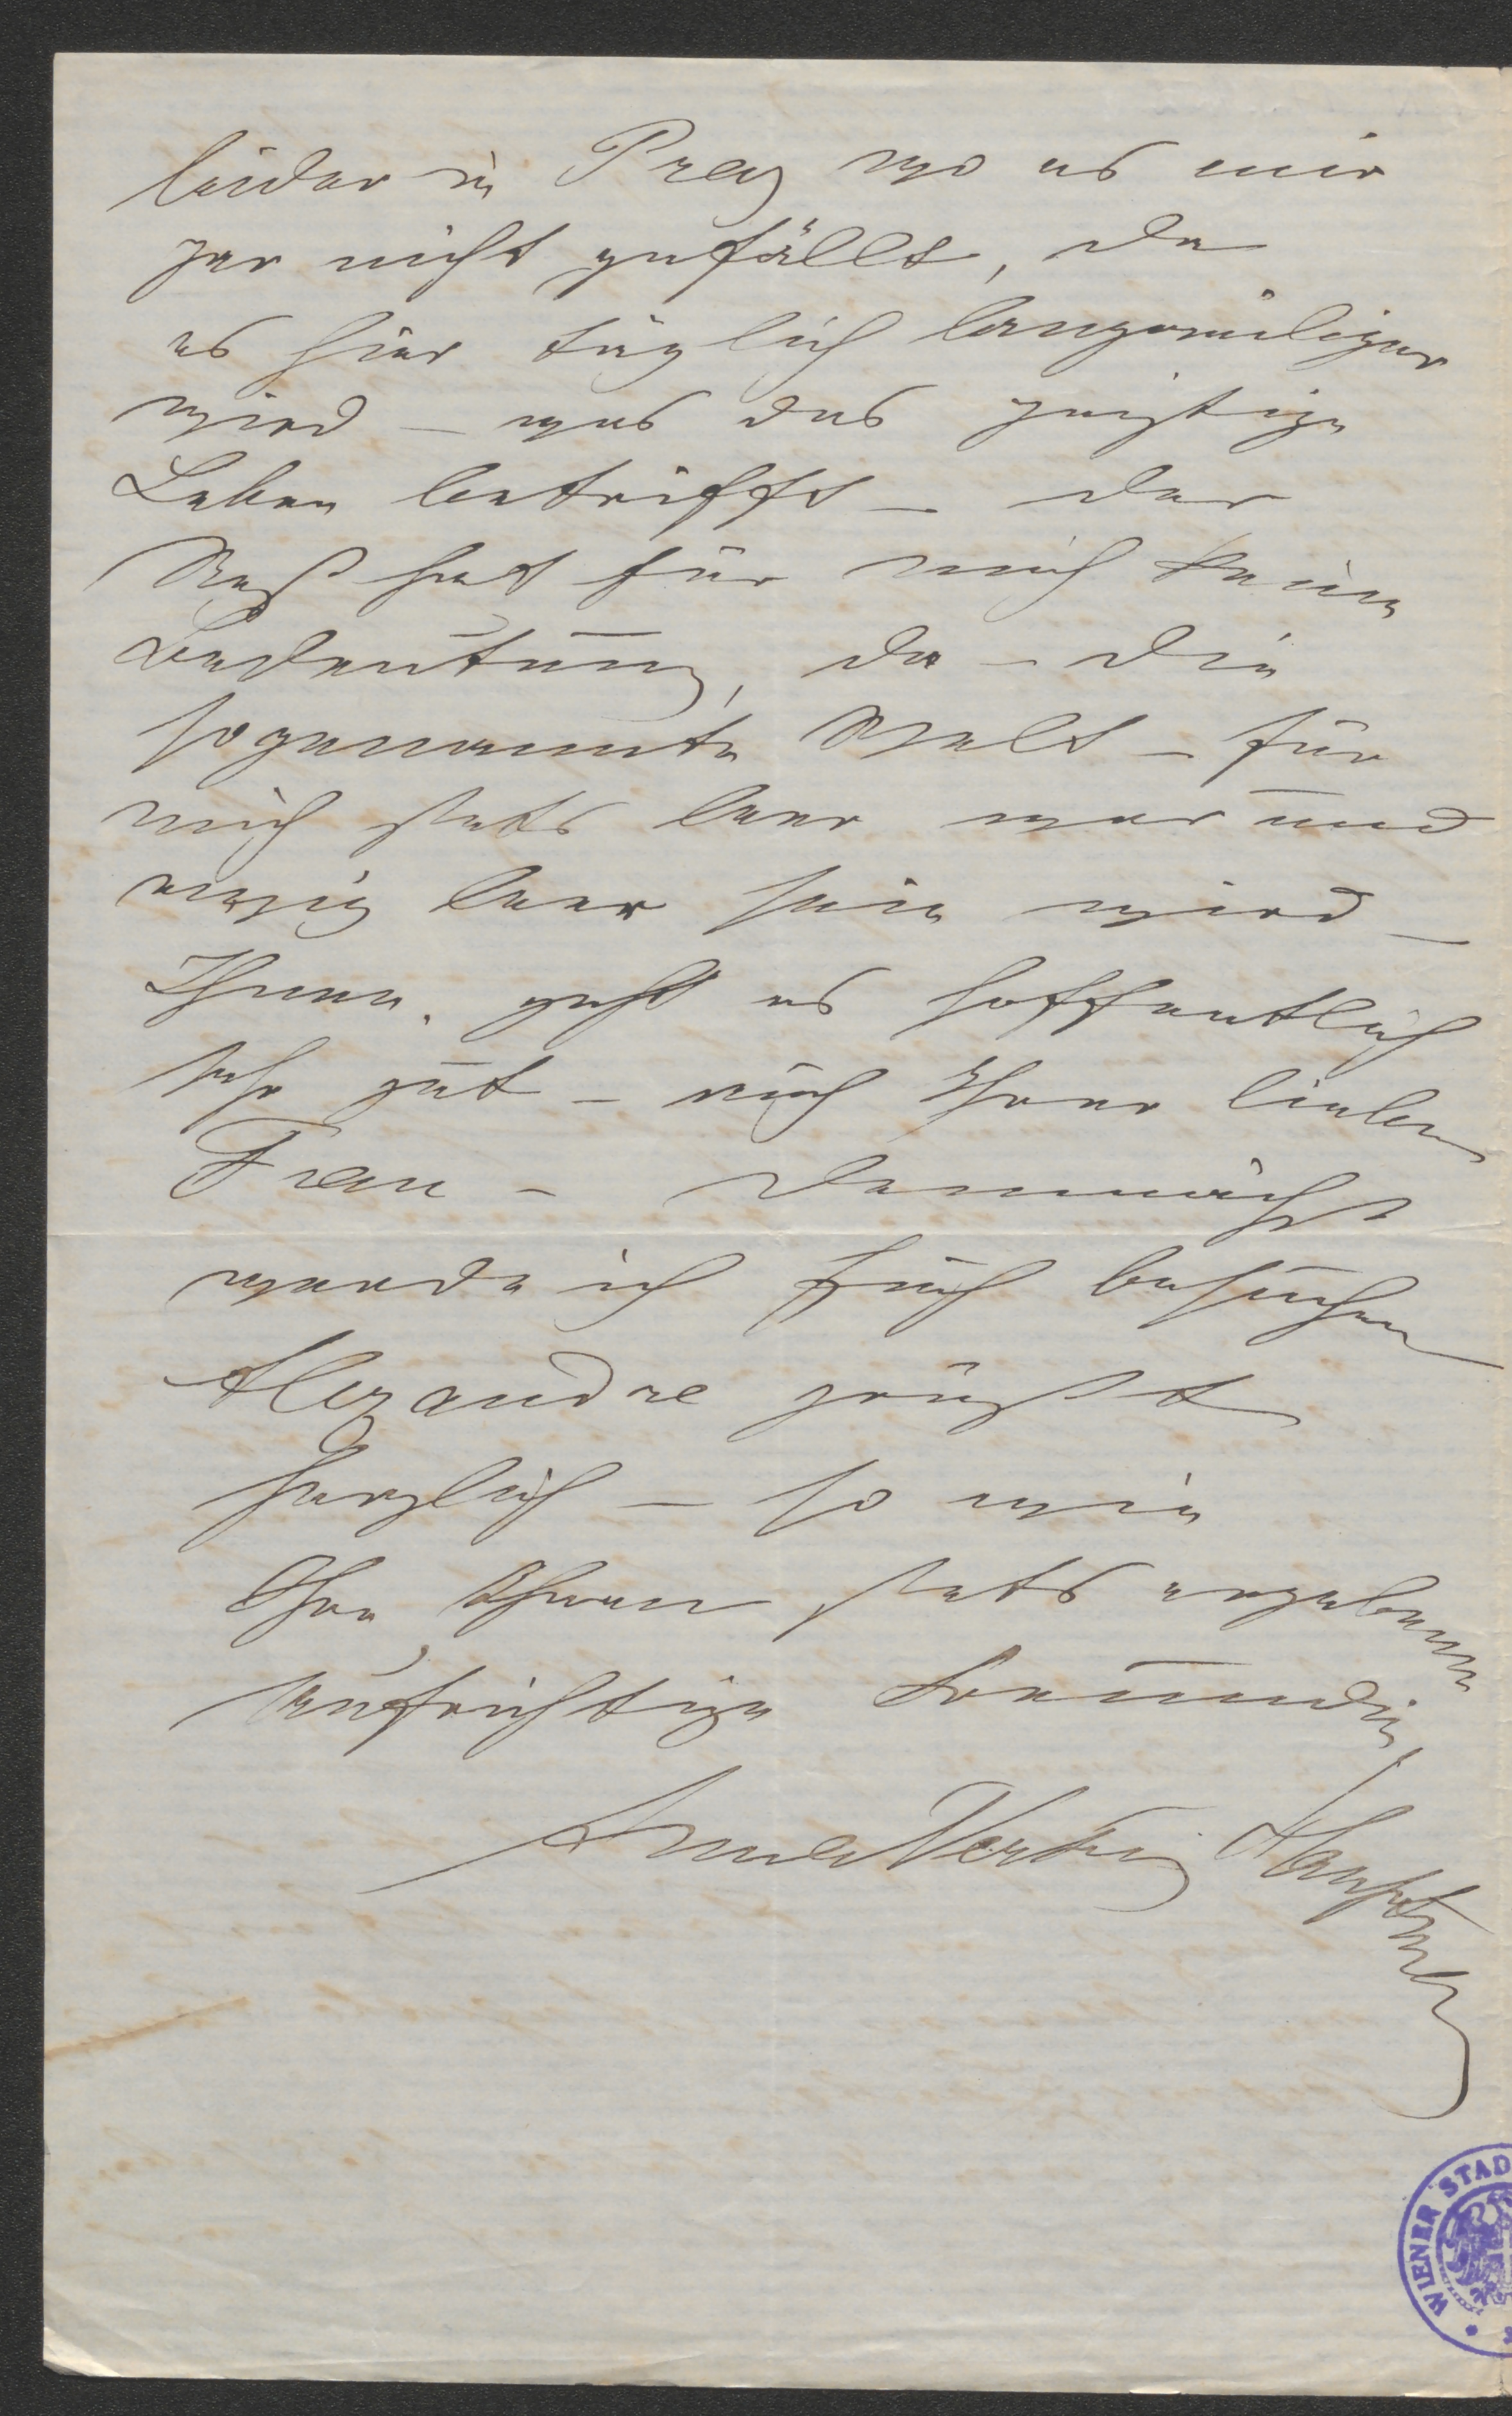 leider in Prag wo es mir
gar nicht gefällt, da
es hier täglich langweiliger
wird – was das geistige
Leben betrifft – der
Rest hat für mich keine
Bedeutung, da – die
sogenannte Welt – für
mich stets leer war und
ewig leer sein wird –
Ihnen geht es hoffentlich
sehr gut – auch Ihrer lieben
Frau – demnächst
werde ich Euch besuchen
Alexandre grüßt
herzlich – so wie
Ihre Ihnen stets ergebene
aufrichtige Freundin
WIENER STAD